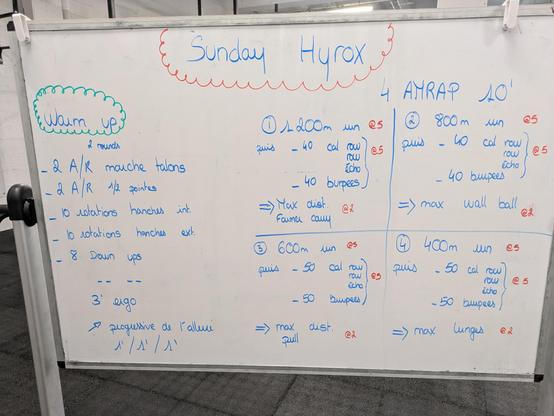 Sunday Hyrox
Warm up
2 rounds
- 2 A/R marche talons
- 2 A/R 1/2 pointes
- 10 rotations hanches int.
- 10 rotations hanches ext.
- 8 Down ups
-- --
3' ergo
↗ progressive de l'allure
1' / 1' / 1'
4 AMRAP 10'
① 1200m run @5
puis - 40 cal row
row
Echo
- 40 burpees
@5
⇒ Max dist. @2
Farmer carry
② 800m run @5
puis - 40 cal row
row
Echo
- 40 burpees
@5
⇒ max wall ball @2
③ 600m run @5
puis - 50 cal row
row
Echo
- 50 burpees
@5
⇒ max dist. @2
pull
④ 400m run @5
puis - 50 cal row
row
Echo
- 50 burpees
@5
⇒ max lunges @2